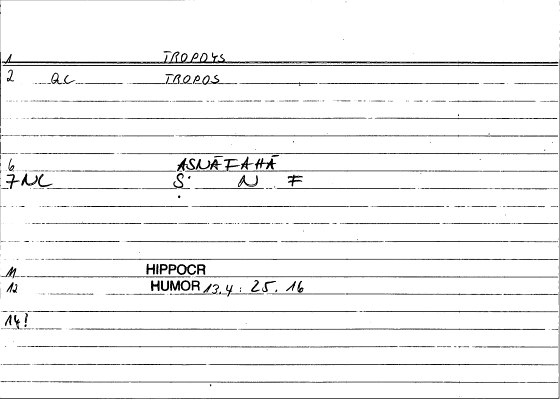 1 TROPOYS
2 QC TROPOS
6 ASNĀFAHĀ
7 NC S· N F
11 HIPPOCR
12 HUMOR 13.4 : 25. 16
14!